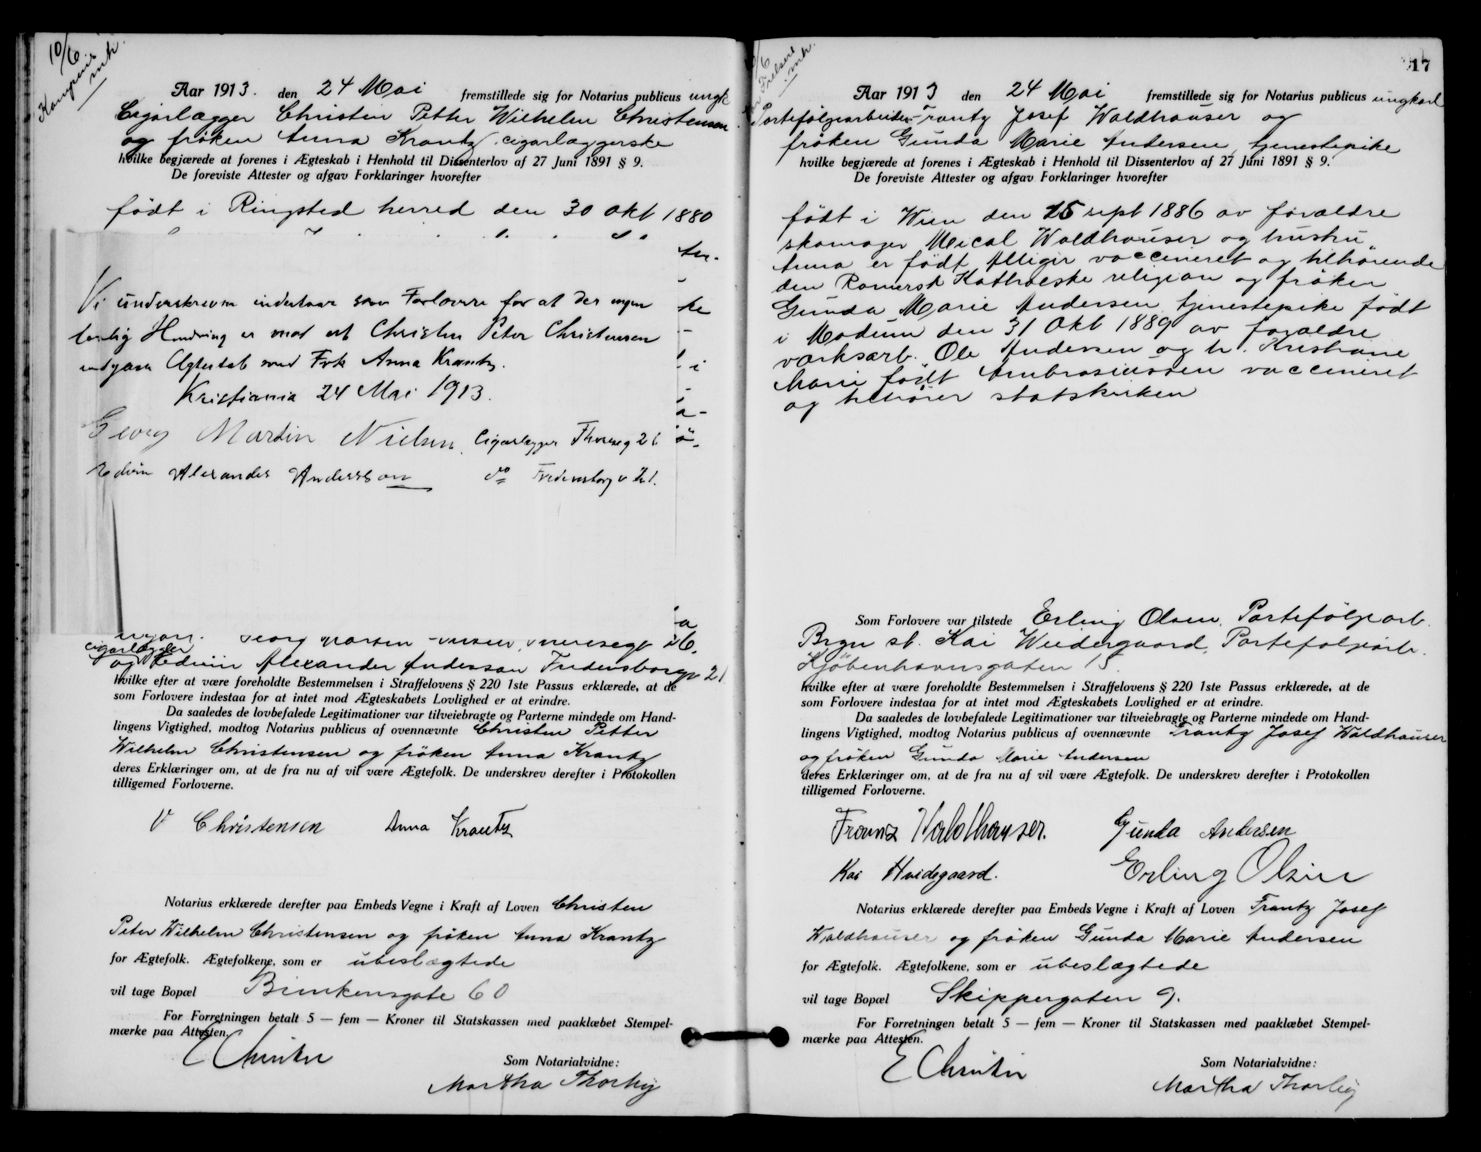 10/6
mk.
Aar 1913. den 24 Mai fremstillede sig for Notarius publicus ungk
Cigarlægger Christen Petter Wilhelm Christensen
og frøken Anna Krantz, cigarlæggerske
hvilke begjærede at forenes i Ægteskab i Henhold til Dissenterlov af 27 Juni 1891 § 9.
De foreviste Attester og afgav Forklaringer hvorefter
født i Ringsted herred den 30 okt 1880
Vi underskrevne indestaar som Forlovere for at der ingen
lovlig Hindring er mod at Christen Peter Christensen
indgaar Ægteskab med Frk Anna Krantz.
Kristiania 24 Mai 1913.
Georg Martin Nielsen, Cigarlægger Thereseg 26
Edvin Alexander Andersson do Fredensborgv 21.
cigarlægger
og Edvin Alexander Andersson Fredensborgv 21
hvilke efter at være foreholdte Bestemmelsen i Straffelovens § 220 1ste Passus erklærede, at de
som Forlovere indestaa for at intet mod Ægteskabets Lovlighed er at erindre.
Da saaledes de lovbefalede Legitimationer var tilveiebragte og Parterne mindede om Hand-
lingens Vigtighed, modtog Notarius publicus af ovennævnte Christen Petter
Wilhelm Christensen og frøken Anna Krantz
deres Erklæringer om, at de fra nu af vil være Ægtefolk. De underskrev derefter i Protokollen
tilligemed Forloverne.
V Christensen Anna Krantz
Notarius erklærede derefter paa Embeds Vegne i Kraft af Loven Christen
Peter Wilhelm Christensen og frøken Anna Krantz
for Ægtefolk. Ægtefolkene, som er ubeslægtede
vil tage Bopæl Brinkensgate 60
For Forretningen betalt 5 — fem — Kroner til Statskassen med paaklæbet Stempel-
mærke paa Attesten.
E Christie
Som Notarialvidne:
Martha Thorby
17
mk.
Aar 1913 den 24 Mai fremstillede sig for Notarius publicus ungkarl
Porteføljearbeider Frantz Josef Waldhauser og
frøken Gunda Marie Andersen, tjenestepike
hvilke begjærede at forenes i Ægteskab i Henhold til Dissenterlov af 27 Juni 1891 § 9.
De foreviste Attester og afgav Forklaringer hvorefter
født i Wien den 15 sept 1886 av forældre
skomager Mical Waldhauser og hustru
Anna er født Illigir vaccineret og tilhørende
den Romersk Katholske religion og frøken
Gunda Marie Andersen tjenestepike født
i Modum den 31 Okt 1889 av forældre
værksarb. Ole Andersen og h. Kristiane
Marie født Ambrosiusden vaccineret
og tilhører statskirken
Som Forlovere var tilstede Erling Olsen, Porteføljearb.
Bryn st. Kai Weidergaard, Portefoljearb.
Kjøbenhavnsgaten 15.
hvilke efter at være foreholdte Bestemmelsen i Straffelovens § 220 1ste Passus erklærede, at de
som Forlovere indestaa for at intet mod Ægteskabets Lovlighed er at erindre.
Da saaledes de lovbefalede Legitimationer var tilveiebragte og Parterne mindede om Hand-
lingens Vigtighed, modtog Notarius publicus af ovennævnte Frantz Josef Waldhauser
og frøken Gunda Marie Andersen
deres Erklæringer om, at de fra nu af vil være Ægtefolk. De underskrev derefter i Protokollen
tilligemed Forloverne.
Franz Waldhauser. Gunda Andersen
Kai Hvidegaard. Erling Olsen
Notarius erklærede derefter paa Embeds Vegne i Kraft af Loven Frantz Josef
Waldhauser og frøken Gunda Marie Andersen
for Ægtefolk. Ægtefolkene, som er ubeslægtede
vil tage Bopæl Skippergaten 9.
For Forretningen betalt 5 — fem — Kroner til Statskassen med paaklæbet Stempel-
mærke paa Attesten.
E Christie
Som Notarialvidne:
Martha Thorby